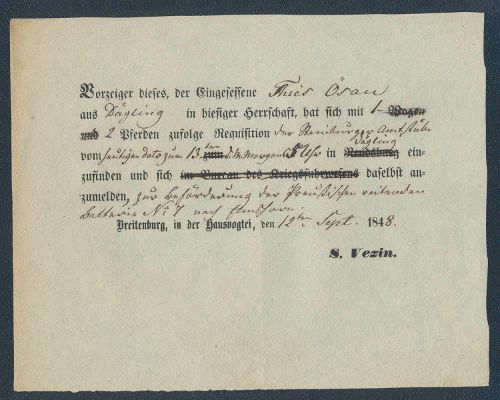 Vorzeiger dieses, der Eingesessene Thies Ösau
aus Dägling in hiesiger Herrschaft, hat sich mit 1 Wagen
und 2 Pferden zufolge Requisition der Rensburger Amtstube
vom heutigen dato zum 13ten zum d. M. Morgens 5 Uhr in Rendsburg Dägling ein-
zufinden und sich im Bureau des Kriegsfuhrwesens daselbst an-
zumelden, zur Beförderung der Preußischen reitenden
Batterie No 7 nach Elmshorn.
Breitenburg, in der Hausvogtei, den 12ten Sept. 1848.
S. Vezin.